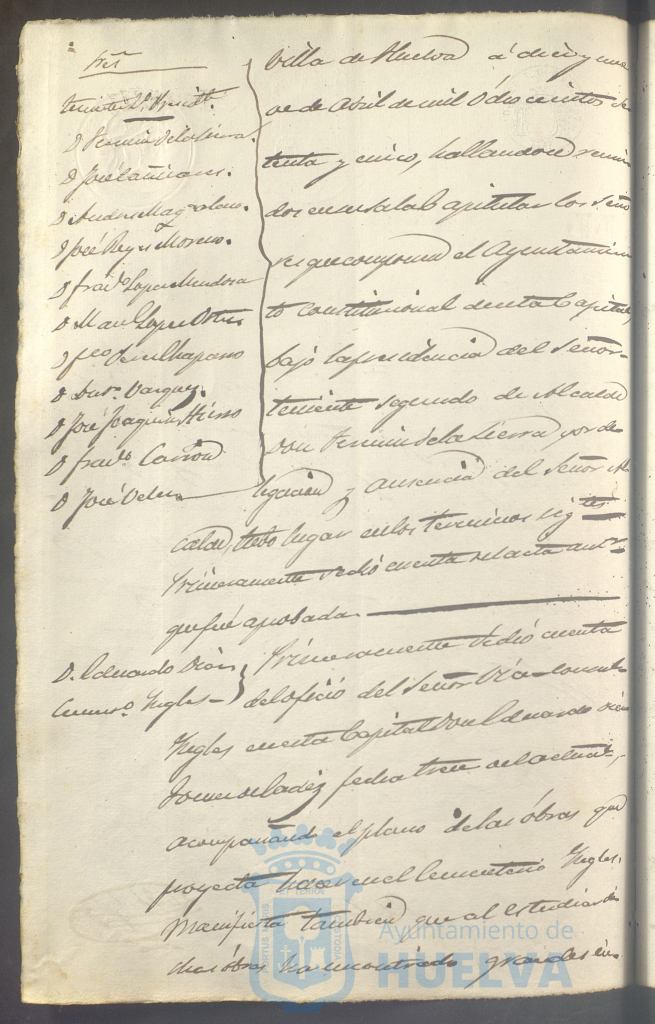 Sres
Teniente 2º Presidte
D Fermin de la Sierra.
D José
D Andres
D José Reyes Moreno.
D Franco Lopez Mendosa
D Manl Lopez
D Chaparro
D Vazquez
D José Joaquin
D Franco Carrion
D José
Villa de Huelva á diez y nue
ve de Abril de mil ochocientos se
tenta y cinco, hallandose reuni
dos en su sala Capitular los Seño
res que componen el Ayuntamien
to constitucional de esta Capital,
bajo la presidencia del Señor
teniente segundo de Alcalde
Don Fermin de la Sierra por de
legacion y ausencia del Señor Al
calde, tubo lugar en los terminos sigtes
Primeramente se dió cuenta del acta antr
que fué aprobada.
D. Eduardo Diaz
Cemento Ingles
Primeramente se dió cuenta
del oficio del Señor Consul
Ingles en esta Capital Don Eduardo Diaz
fecha trece del actual,
acompañando el plano de las obras que
proyecta hacer en el Cementerio Ingles.
Manifiesta tambien que al estudiar di
chas obras ha encontrado grandes in
PORTUS MARIS
ET TERRÆ
CUSTODIA
Ayuntamiento de
HUELVA